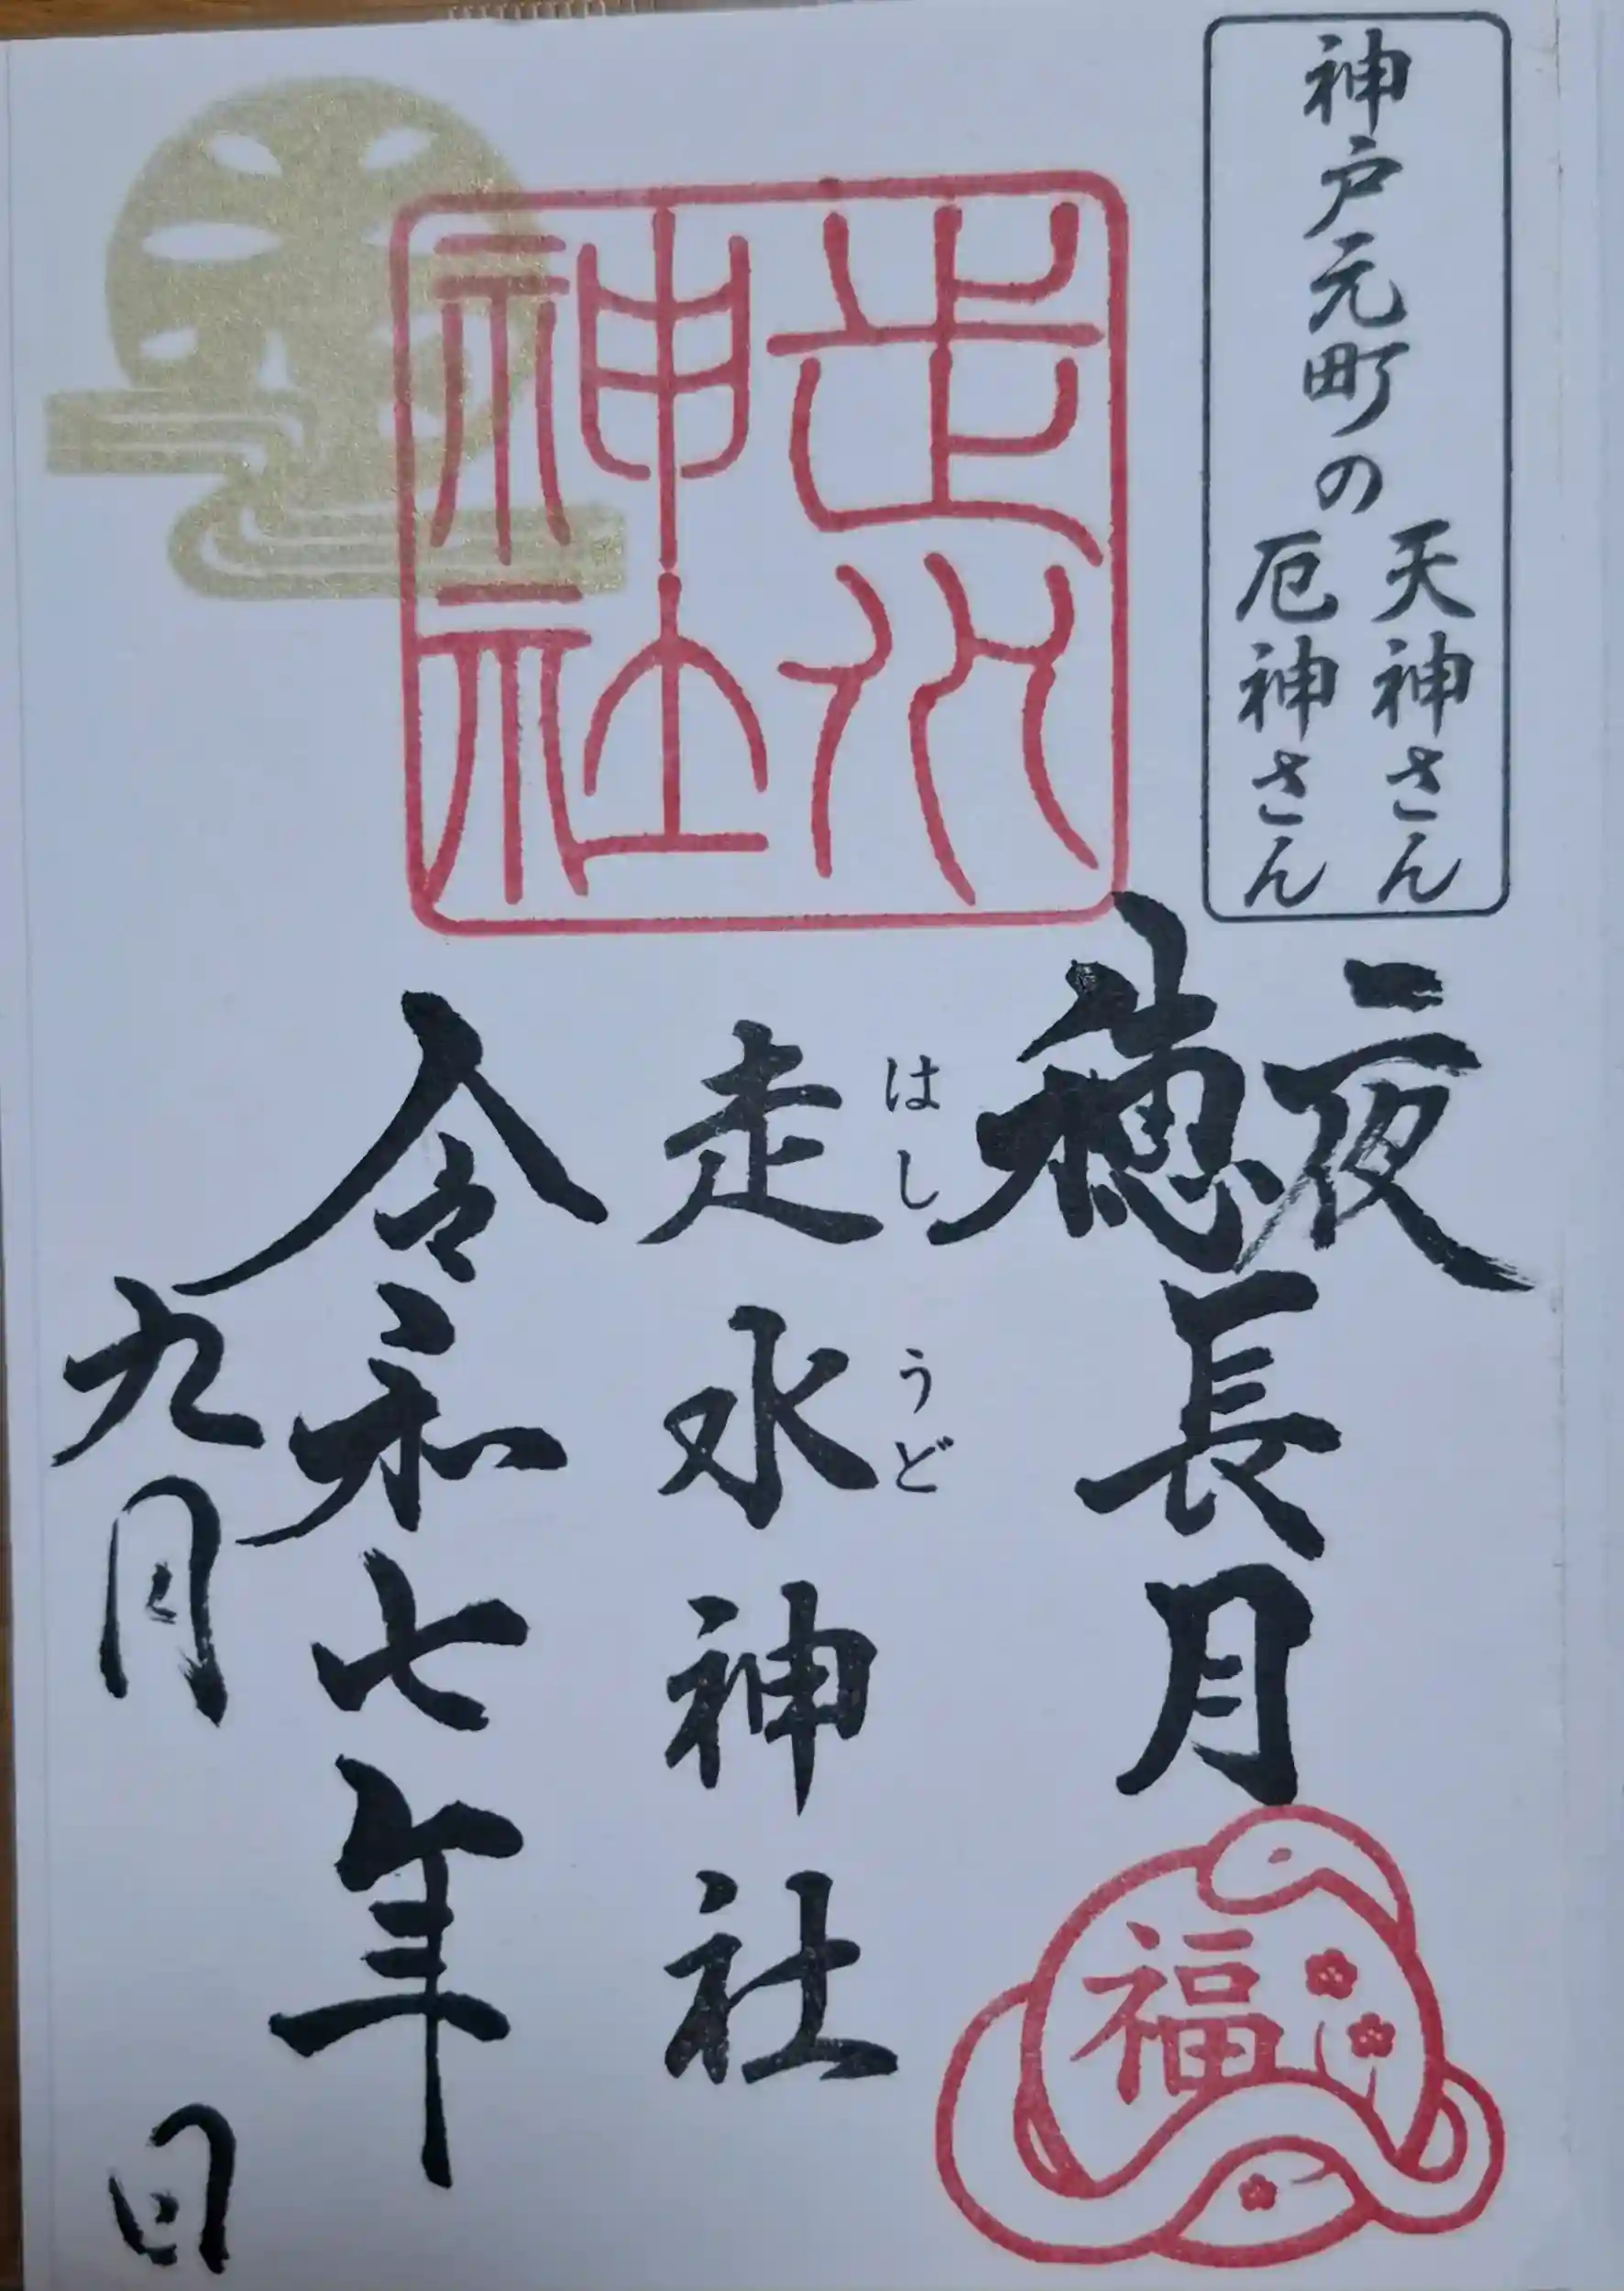 神戸元町の
天神さん
厄神さん
夜
穂
長月
走水神社
はしうど
令和七年
九月
日
走水
神社
福